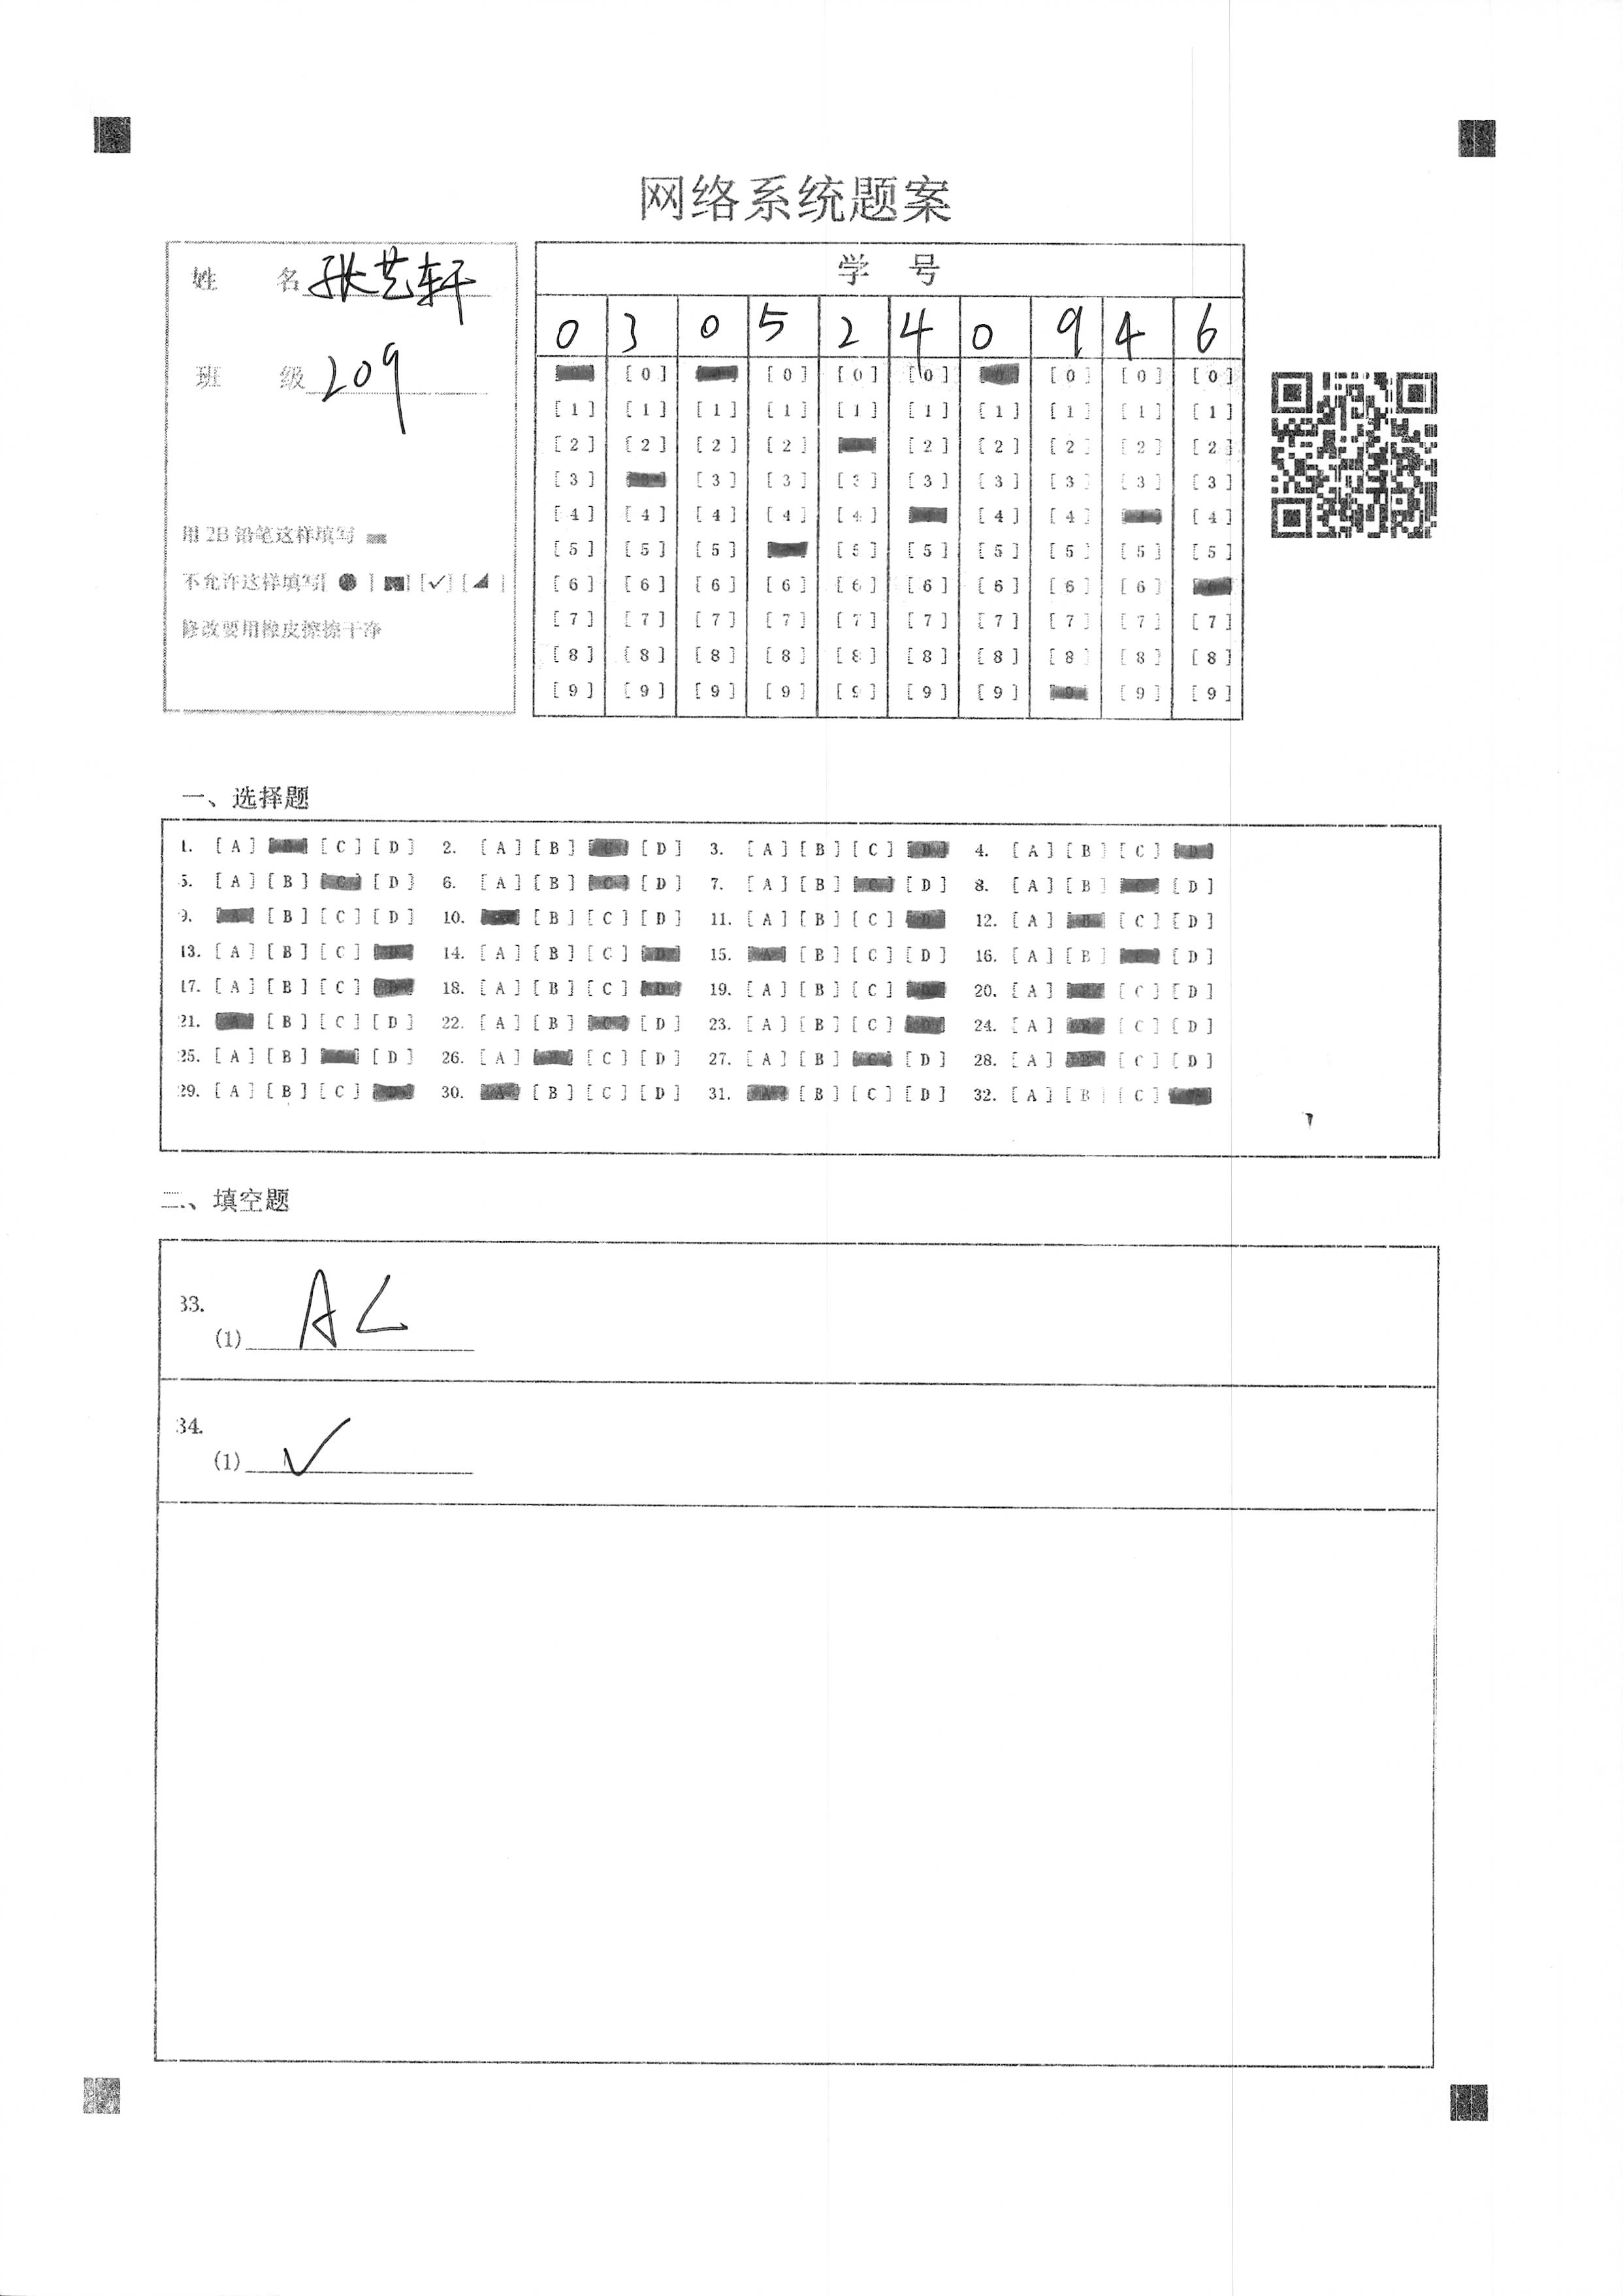 网络系统题案
姓 名 张艺轩
班 级 209
用 2B 铅笔这样填写
不允许这样填写[ ● ] [■] [✓] [◢ ]
修改要用橡皮擦擦干净
学 号
0 3 0 5 2 4 0 9 4 6
[0] [0] [0] [0] [0] [0] [0]
[1] [1] [1] [1] [1] [1] [1] [1] [1] [1]
[2] [2] [2] [2] [2] [2] [2] [2] [2]
[3] [3] [3] [3] [3] [3] [3] [3] [3]
[4] [4] [4] [4] [4] [4] [4] [4]
[5] [5] [5] [5] [5] [5] [5] [5] [5]
[6] [6] [6] [6] [6] [6] [6] [6] [6]
[7] [7] [7] [7] [7] [7] [7] [7] [7] [7]
[8] [8] [8] [8] [8] [8] [8] [8] [8] [8]
[9] [9] [9] [9] [9] [9] [9] [9] [9]
一、选择题
1. [A] [C] [D] 2. [A] [B] [D] 3. [A] [B] [C] 4. [A] [B] [C]
5. [A] [B] [D] 6. [A] [B] [D] 7. [A] [B] [D] 8. [A] [B] [D]
9. [B] [C] [D] 10. [B] [C] [D] 11. [A] [B] [C] 12. [A] [C] [D]
13. [A] [B] [C] 14. [A] [B] [C] 15. [B] [C] [D] 16. [A] [B] [D]
17. [A] [B] [C] 18. [A] [B] [C] 19. [A] [B] [C] 20. [A] [C] [D]
21. [B] [C] [D] 22. [A] [B] [D] 23. [A] [B] [C] 24. [A] [C] [D]
25. [A] [B] [D] 26. [A] [C] [D] 27. [A] [B] [D] 28. [A] [C] [D]
29. [A] [B] [C] 30. [B] [C] [D] 31. [B] [C] [D] 32. [A] [B] [C]
二、填空题
33.
(1) A C
34.
(1) ✓